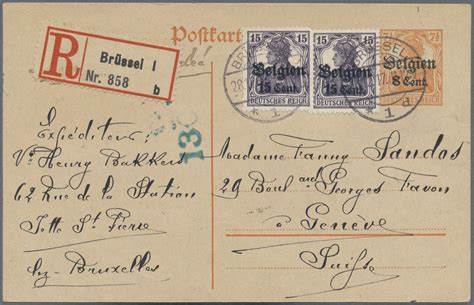 Postkarte
R
Brüssel 1
Nr. 858
b
15 15
Belgien
15 Cent.
DEUTSCHES REICH
15 15
Belgien
15 Cent.
DEUTSCHES REICH
7½
Belgien
8 Cent.
* 1 d
Expéditeur:
Vve Henry Bakkers
62 Rue de la Station
Jette St Pierre
lez-Bruxelles
13
Madame Fanny Sandos
29 Boul and Georges Favon
à Genève
Suisse